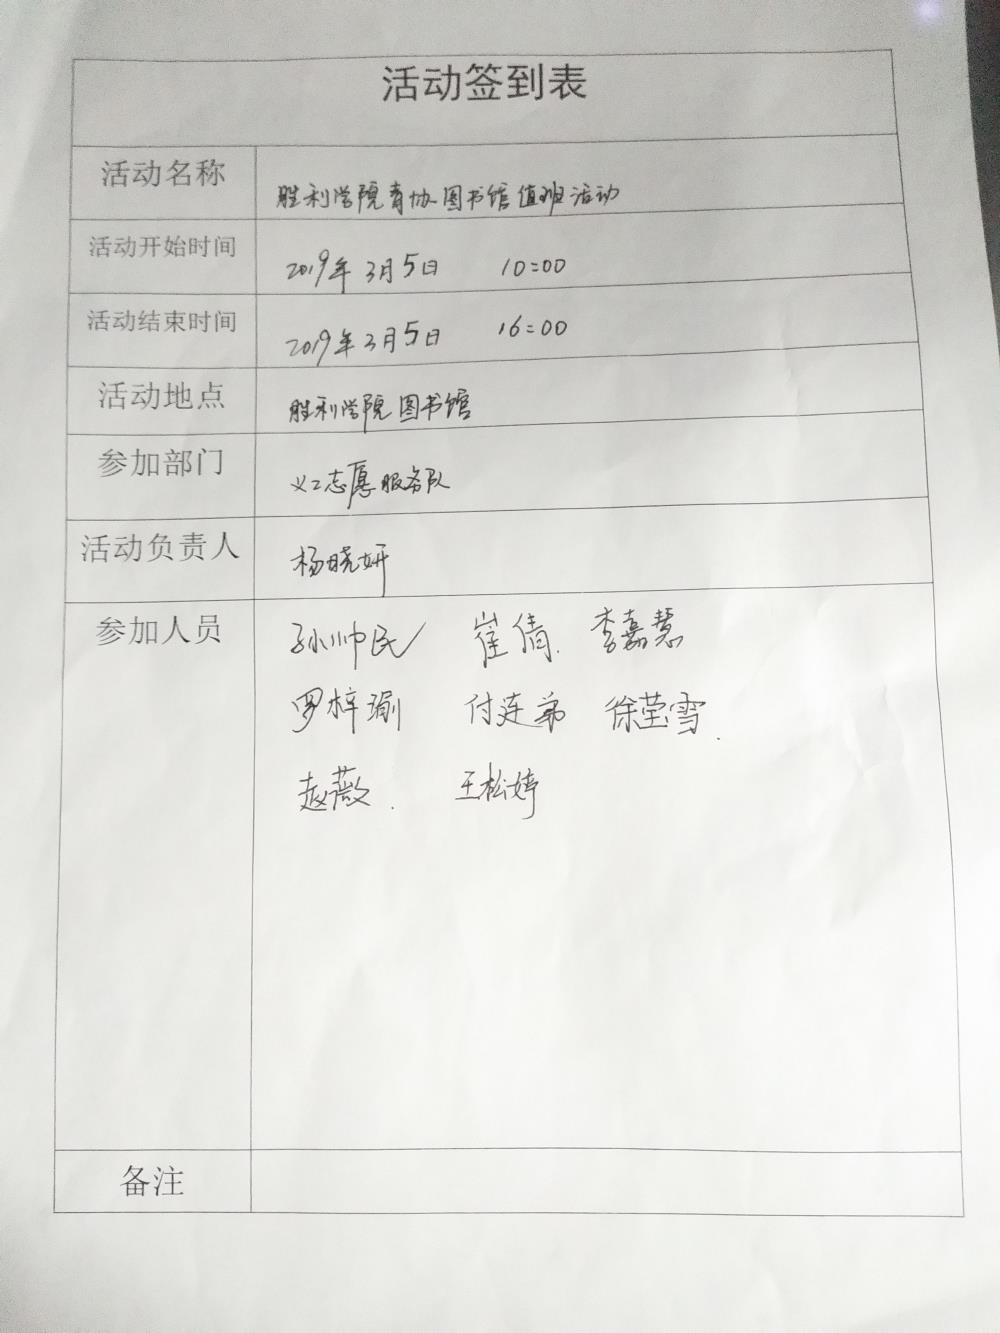 活动签到表
活动名称 胜利学院青协图书馆值班活动
活动开始时间 2019年3月5日 10:00
活动结束时间 2019年3月5日 16:00
活动地点 胜利学院图书馆
参加部门 义工志愿服务队
活动负责人 杨晓妍
参加人员 孙帅民 崔倩 李嘉慧
罗梓瑜 付连弟 徐莹雪
赵薇 王松婷
备注